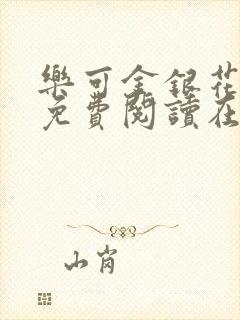 樂可金銀花
免費閱讀在
山肖